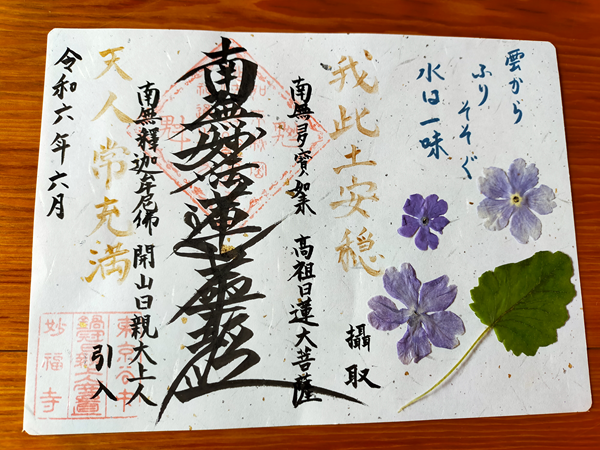 雲から
ふり
そそぐ
水は一味
我此土安穏
摂取
南無多寳如来
高祖日蓮大菩薩
南無妙法蓮華経
南無釋迦牟尼佛
開山日親大上人
引入
天人常充満
令和六年六月
妙福寺